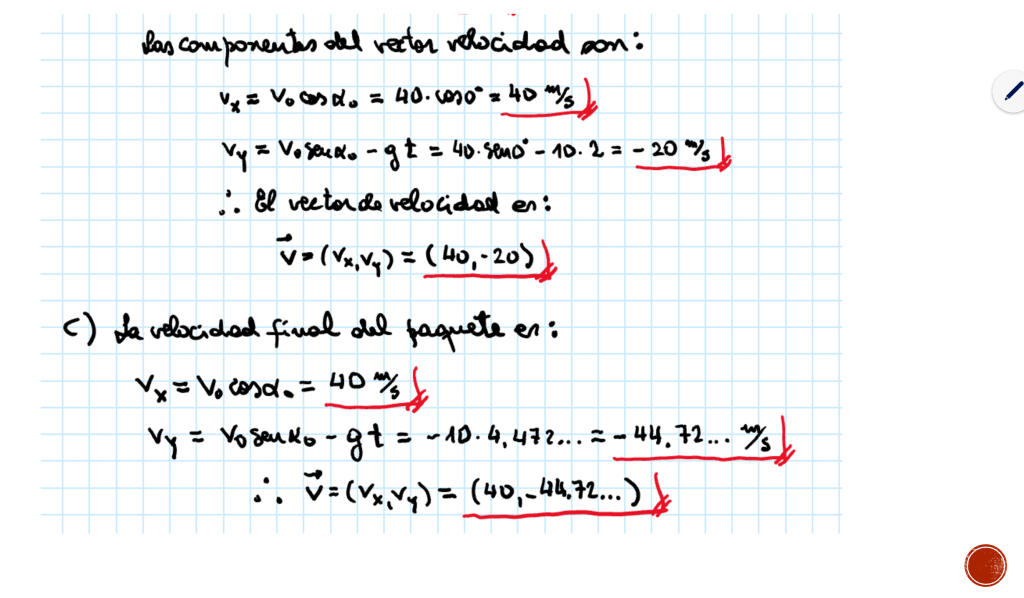 Las componentes del vector velocidad son:
vₓ = v₀ cos α₀ = 40·cos0° = 40 m/s
v_y = v₀ sen α₀ - g t = 40·sen0° - 10·2 = -20 m/s
∴ El vector de velocidad es:
v⃗ = (vₓ, v_y) = (40, -20)
c) La velocidad final del paquete es:
vₓ = v₀ cos α₀ = 40 m/s
v_y = v₀ sen α₀ - g t = -10·4,472... = -44.72... m/s
∴ v⃗ = (vₓ, v_y) = (40, -44.72...)